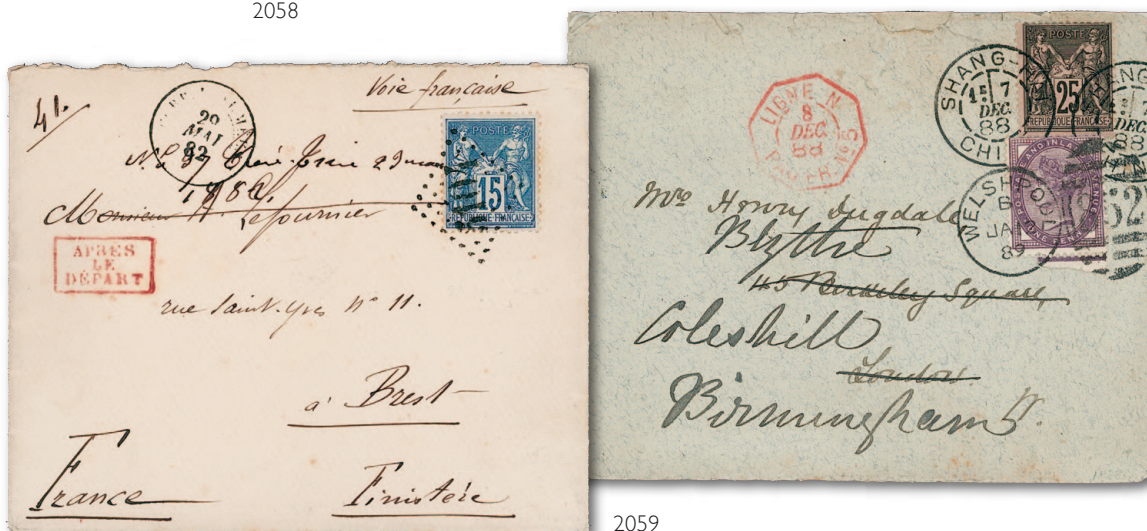 2058
Voie française
41.
29
MAI
82
POSTE
15
REPUBLIQUE FRANÇAISE
23 mai
1882
Monsieur
Lefournier
APRES
LE
DÉPART
rue Saint-Yves N° 11.
à Brest
France
Finistère
LIGNE N
8
DEC.
88
SHANG-
7
DEC
88
CHI
POSTE
25
REPUBLIQUE FRANÇAISE
HANG
DEC
88
WELSHPOOL
B
JA
89
AND INLAND
62
Mrs Henry Dugdale
Blythe
45 Berkeley Square
Coleshill
London
Birmingham
2059